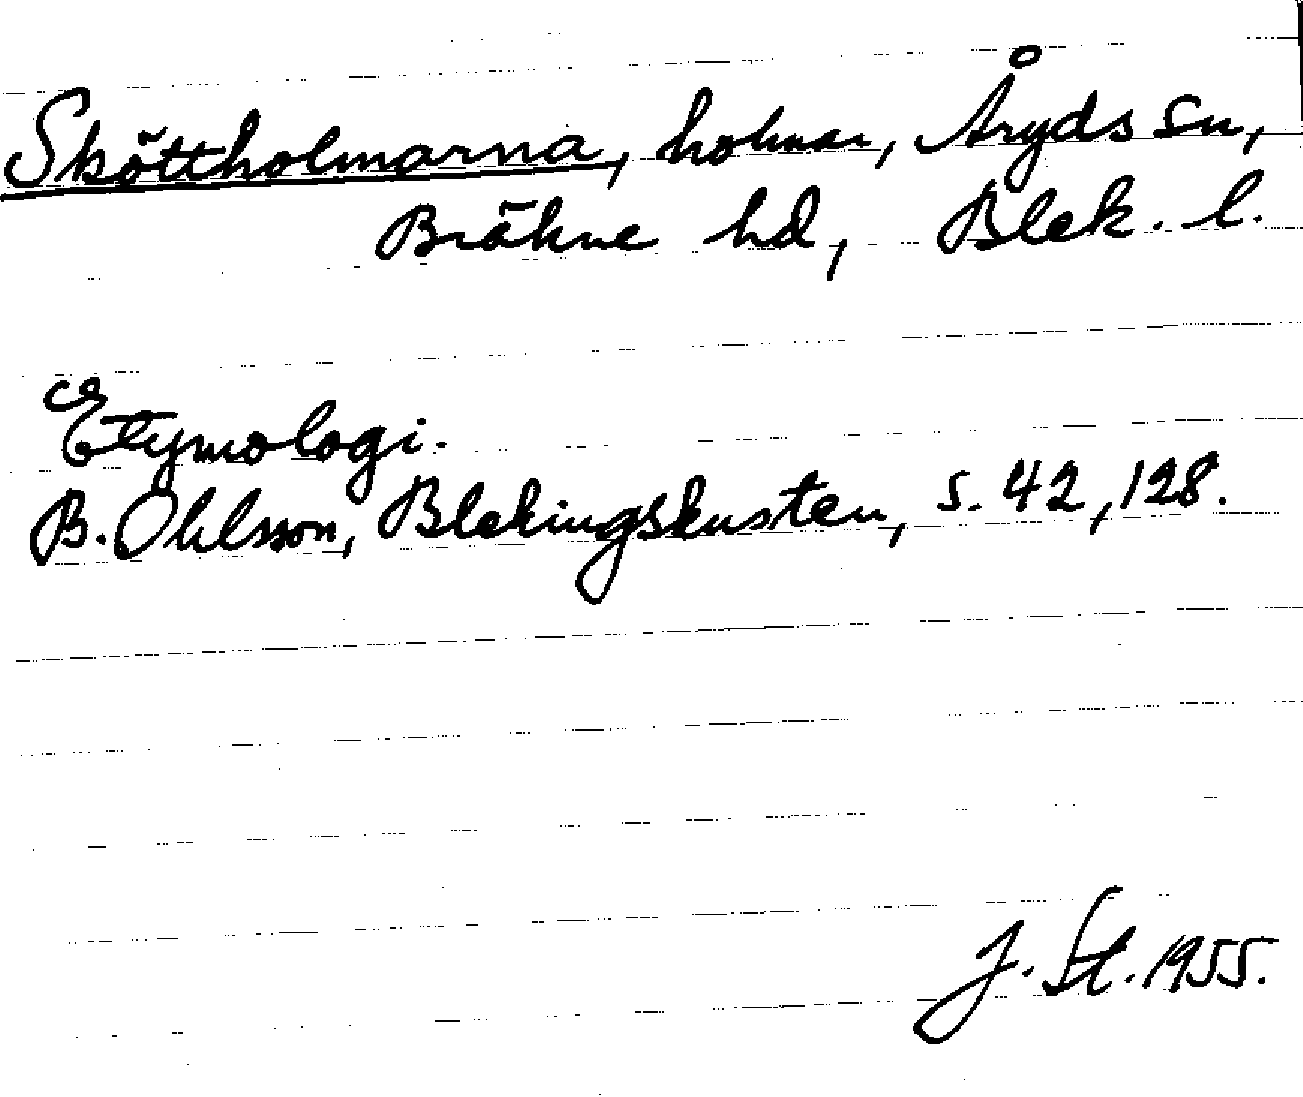 Sköttholmarna, holmar, Åryds sn,
Bräkne hd, Blek. l.
Etymologi.
B. Ohlsson, Blekingskusten, s. 42, 128.
J. St. 1955.